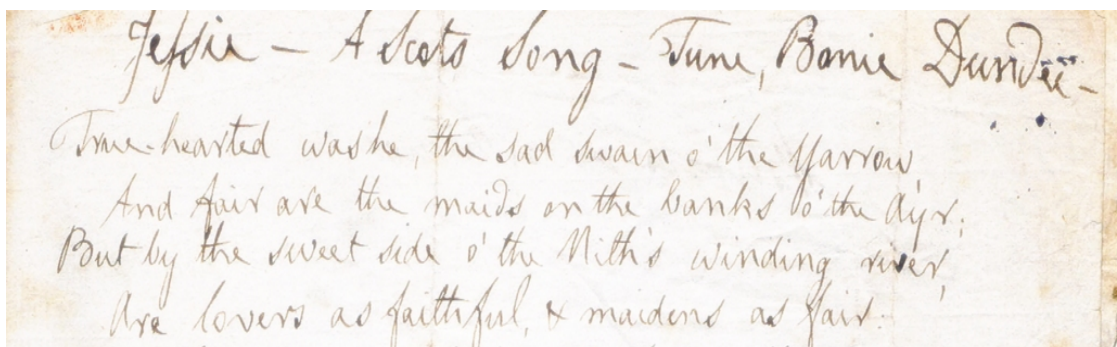 Jessie — A Scots Song — Tune, Bonie Dundee —
True-hearted was he, the sad swain o' the Yarrow,
And fair are the maids on the banks o' the Ayr;
But by the sweet side o' the Nith's winding river,
Are lovers as faithful, & maidens as fair: